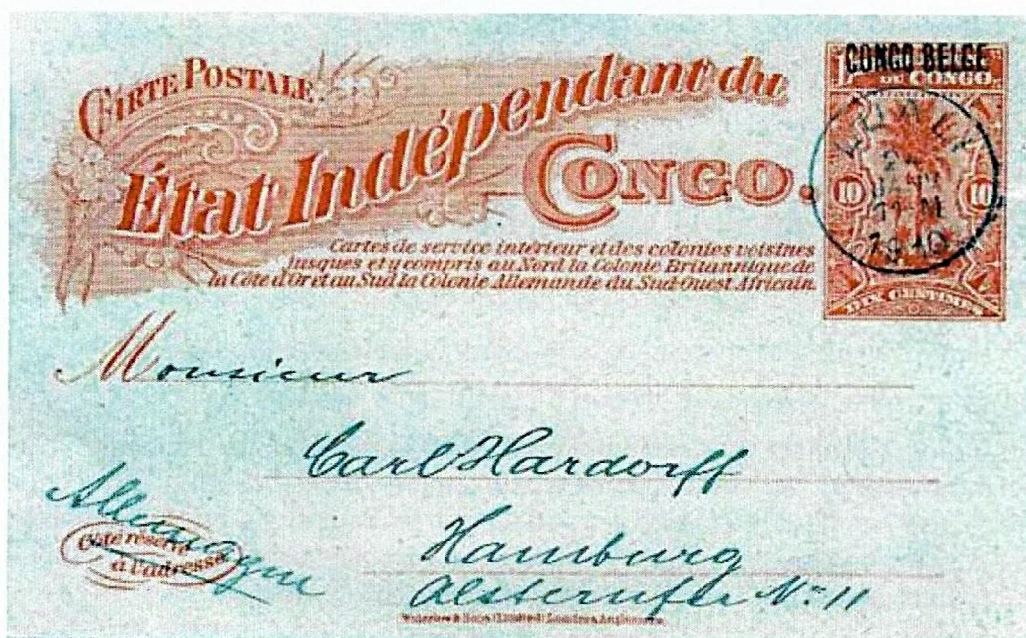 CARTE POSTALE.
État Indépendant du
CONGO.
Cartes de service intérieur et des colonies voisines
jusques et y compris au Nord la Colonie Britannique de
la Côte d'Or et au Sud la Colonie Allemande du Sud-Ouest Africain.
CONGO BELGE
DU CONGO.
10 10
1910
DIX CENTIMES
Monsieur
Carl Hardorff
Allemagne
Côté réservé
à l'adresse
Hamburg
Alsterufer No: 11
Waterlow & Sons Limited, Londres, Angleterre.